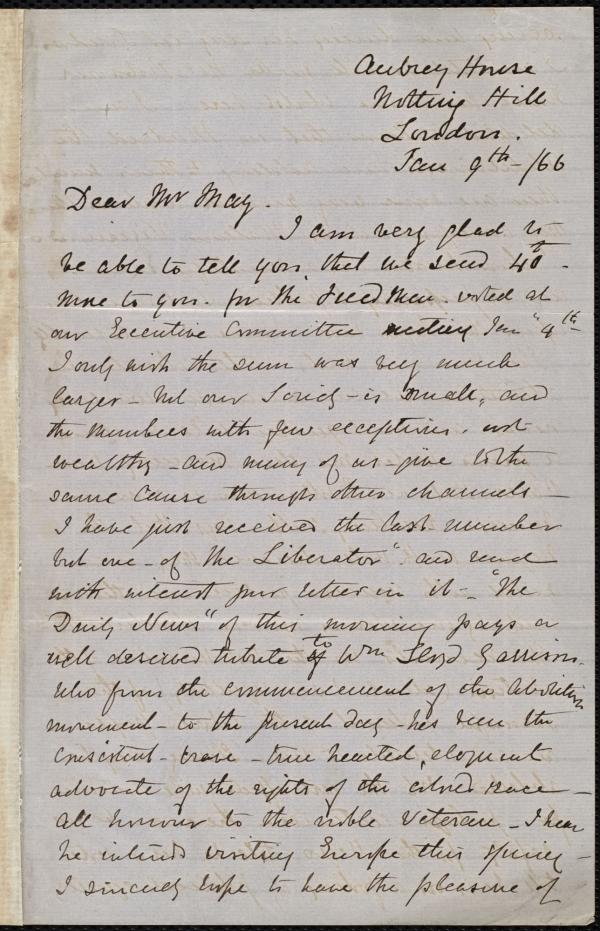 Aubrey House
Notting Hill
London.
Jan 9th /66
Dear Mr May.
I am very glad to
be able to tell you, that we send 40£
more to you for the Freedmen. voted at
our Executive Committee meeting Jan 4th
I only wish the sum was very much
larger - but our Society - is small, and
the members with few exceptions. not
wealthy - and many of us - give to the
same cause through other channels -
I have just received the last number
but one - of "the Liberator" and read
with interest your letter in it - "The
Daily News" of this morning pays a
well deserved tribute to Wm Lloyd Garrison.
who from the commencement of the Abolition
movement - to the present day - has been the
consistent - brave - true hearted, eloquent
advocate of the rights of the colored race -
all honour to the noble Veteran - I hear
he intends visiting Europe this Spring -
I sincerely hope to have the pleasure of